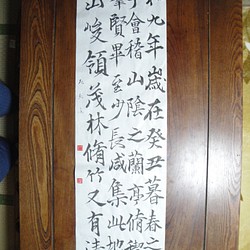 和九年歲在癸丑暮春之
于會稽山陰之蘭亭脩禊
羣賢畢至少長咸集此地
山峻領茂林脩竹又有清